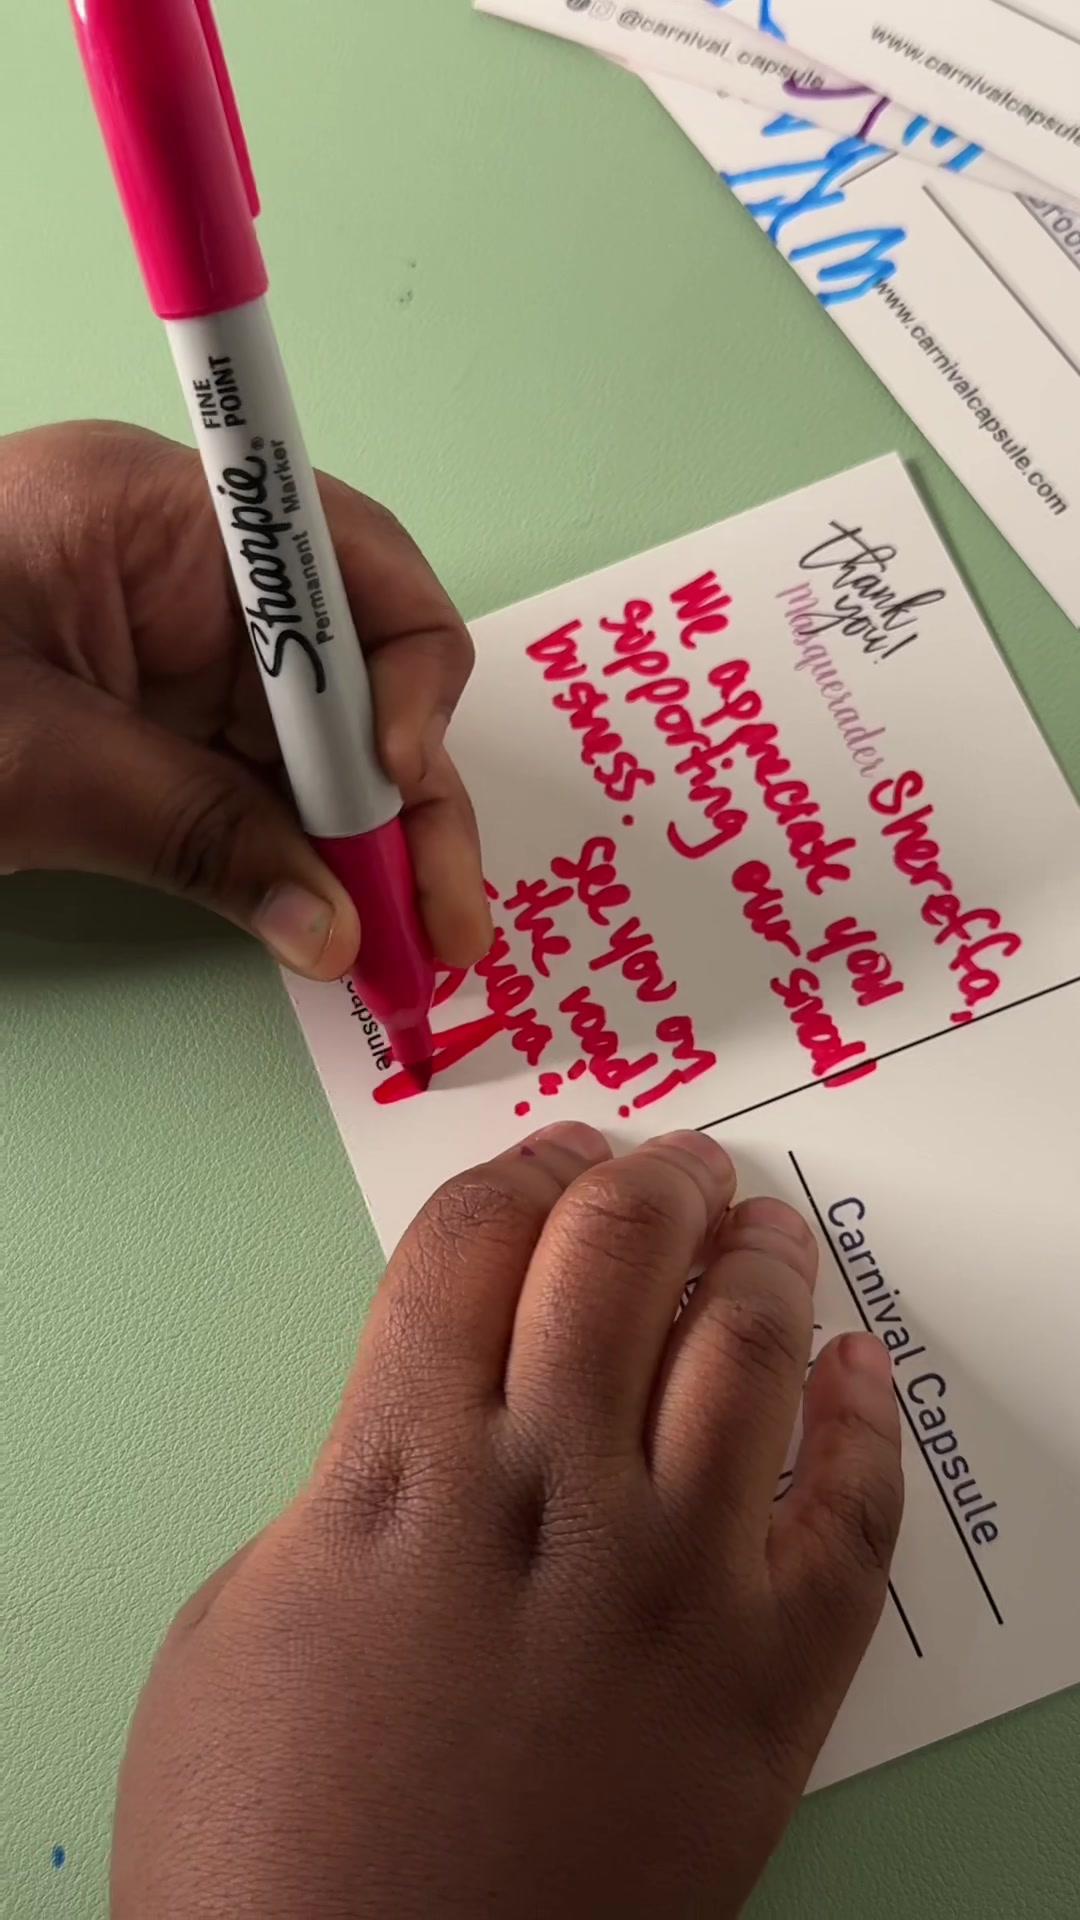 @carnival_capsule
www.carnivalcapsule
www.carnivalcapsule.com
thank
you!
Masquerader Shereffa,
We appreciate you
supporting our small
business. See you on
the road!
capsule
Carnival Capsule
Sharpie®
FINE
POINT
Permanent Marker